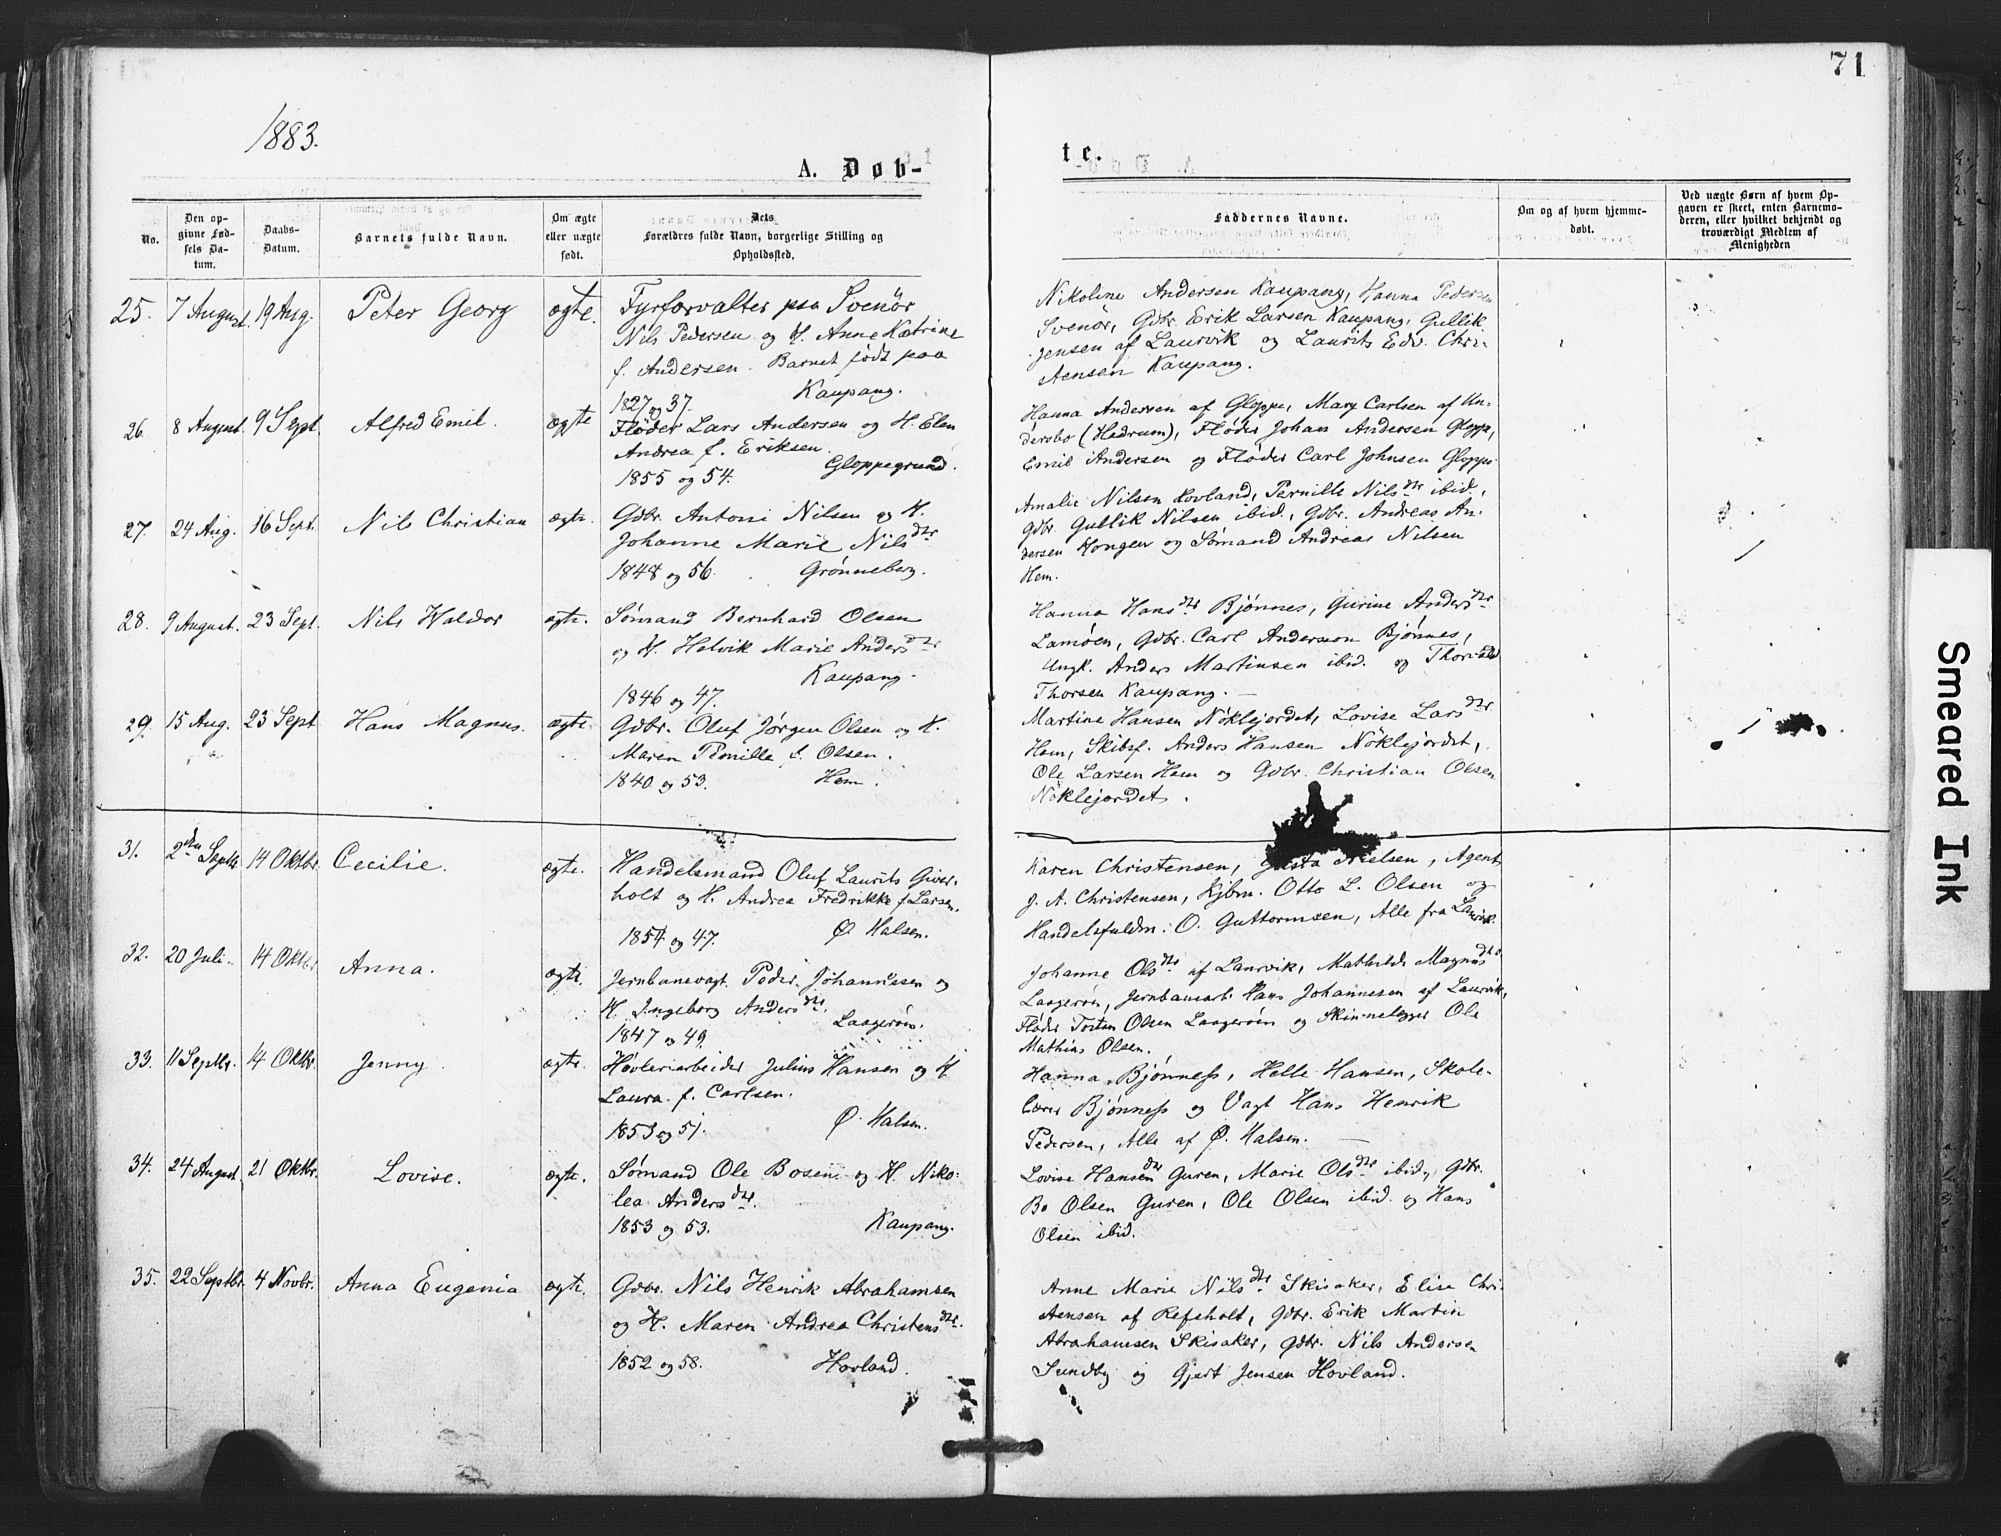 71
1883.
A. Døb-
te.
No.
Den op-
givne Fød-
sels Da-
tum.
Daabs-
Datum.
Barnets fulde Navn.
Om ægte
eller uægte
født.
Dets
Forældres fulde Navn, borgerlige Stilling og
Opholdssted.
Faddernes Navne.
Om og af hvem hjemme-
døbt.
Ved uægte Børn af hvem Op-
gaven er skeet, enten Barnemo-
deren, eller hvilket bekjendt og
troværdigt Medlem af
Menigheden
25. 7 August. 19 Aug. Peter Georg ægte. Fyrforvalter paa Svenör
Nils Pedersen og H. Anne Katrine
f. Andersen. Barnet født paa
Kaupang.
1827 og 37.
Nikoline Andersen Kaupang, Hanna Pedersen
Svenör, Gdbr. Erik Larsen Kaupang, Gullik
Jensen af Laurvik og Laurits Edv. Chri-
stensen Kaupang.
26. 8 August. 9 Sept. Alfred Emil. ægte Fløder Lars Andersen og H. Elen
Andrea f. Eriksen.
1855 og 54. Gloppegrund.
Hanna Andersen af Gloppe, Mary Carlsen af Un-
dersbo (Hedrum), Fløder Johan Andersen Gloppe,
Emil Andersen og Fløder Carl Johnsen Gloppe
27. 24 Aug. 16 Sept. Nils Christian ægte. Gdbr. Antoni Nilsen og H.
Johanne Marie Nilsdtr
1848 og 56. Grønneberg.
Amalie Nilsen Hovland, Pernille Nilsdtr ibid.,
Gdbr. Gullik Nilsen ibid., Gdbr. Andreas An-
dersen Hongen og Sømand Andreas Nilsen
Hem.
28. 9 August. 23 Sept. Nils Waldor ægte. Sømand Bernhard Olsen
og H. Helvik Marie Andersdtr
Kaupang.
1846 og 47.
Hanna Hansdtr Bjønnes, Gurine Andersdtr
Lamøen, Gdbr. Carl Anderson Bjønnes,
Ungk. Anders Martinsen ibid. og Thorvald
Thorsen Kaupang. —
29. 15 Aug. 23 Sept Hans Magnus. ægte. Gdbr. Oluf Jørgen Olsen og H.
Maren Pernille f. Olsen.
1840 og 53. Hem.
Martine Hansen Nöklejordet, Lovise Larsdtr
Hem, Skibsf. Anders Hansen Nöklejordet,
Ole Larsen Hem og Gdbr. Christian Olsen
Nöklejordet.
31. 2den Septbr. 14 Oktbr. Cecilie. ægte. Handelsmand Oluf Laurits Giver-
holt og H. Andrea Fredrikke f. Larsen.
1854 og 47. Ø. Halsen.
Karen Christensen, Nielsen, Agent
J. A. Christensen, Kjbm. Otto L. Olsen og
Handelsfuldm. O. Guttormsen, Alle fra Laurvik.
32. 20 Juli. 14 Oktbr. Anna. ægte. Jernbanevagt Peder Johannesen og
H. Ingeborg Andersdtr.
Laagerøen.
1847 og 49.
Johanne Olsdtr af Laurvik, Mathilde Magnusdtr
Laagerøen, Jernbanearb. Hans Johannesen af Laurvik,
Fløder Torsten Olsen Laagerøen og Skinnelægger Ole
Mathias Olsen.
33. 11 Septbr. 14 Oktbr. Jenny ægte. Høvleriarbeider Julius Hansen og H
Laura f. Carlsen.
1853 og 51. Ø. Halsen.
Hanna Bjønness, Helle Hansen, Skole-
lærer Bjønness og Vagt Hans Henrik
Pedersen, Alle af Ø. Halsen. —
34. 24 August. 21 Oktbr. Lovise. ægte. Sømand Ole Bosen og H. Niko-
lea Andersdtr.
1853 og 53. Kaupang.
Lovise Hansendtr Guren, Marie Olsdtr ibid., Gdbr.
Bo Olsen Guren, Ole Olsen ibid. og Hans
Olsen ibid.
35. 22 Septbr. 4 Novbr. Anna Eugenia ægte. Gdbr. Nils Henrik Abrahamsen
og H. Maren Andrea Christensdtr.
1852 og 58. Hovland.
Anne Marie Nilsdtr Skisaker, Elise Chri-
stensen af Refsholt, Gdbr. Erik Martin
Abrahamsen Skisaker, Gdbr. Nils Andersen
Sundby og Gjert Jensen Hovland.
Smeared Ink